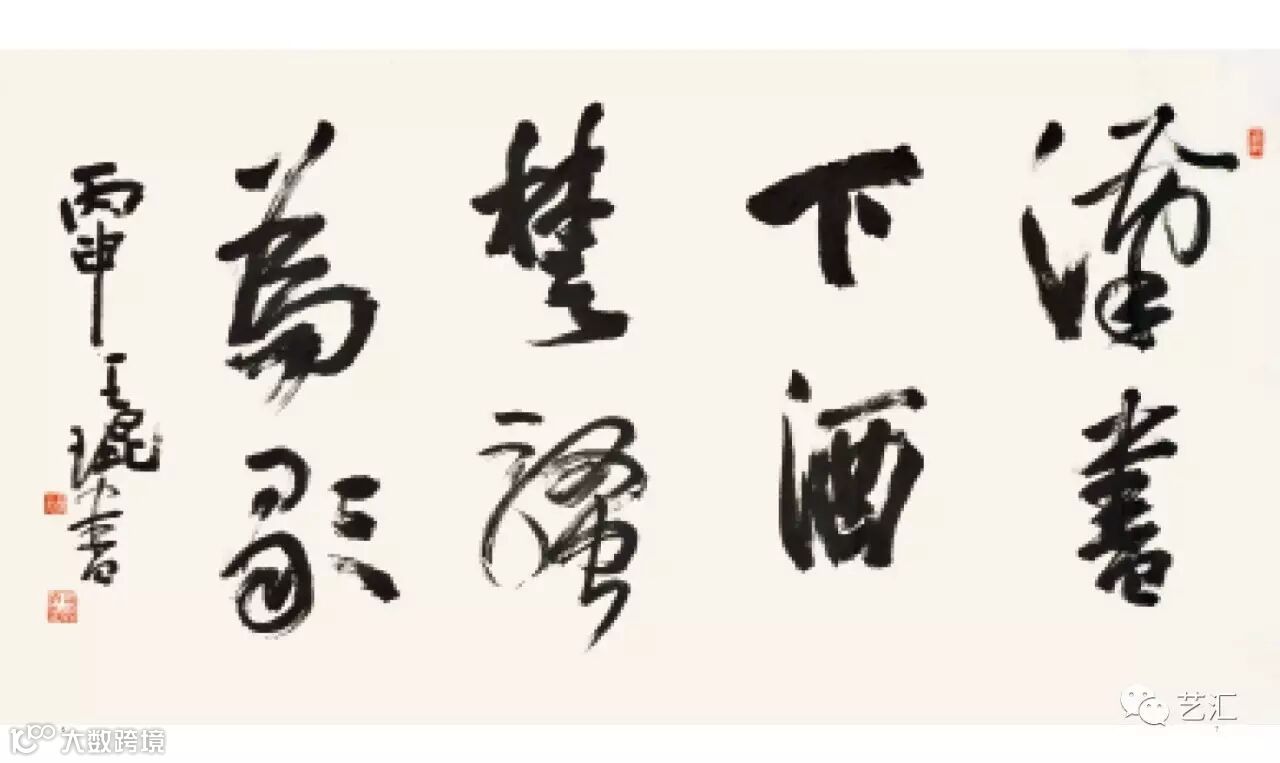 漢書
下酒
楚騷
為歌
丙申王琨書
艺汇
大数跨境